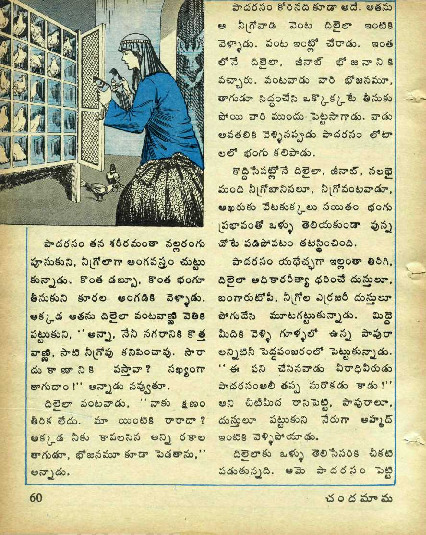 పాదరసం తన శరీరమంతా నల్లరంగు
పూసుకుని, నీగ్రోలాగా అంగవస్త్రం చుట్టు
కున్నాడు. కొంత డబ్బూ, కొంత భంగూ
తీసుకుని కూరల అంగడికి వెళ్ళాడు.
అక్కడ అతను దిలైలా వంటవాణ్ణి వెతికి
పట్టుకుని, "అన్నా, నేనీ నగరానికి కొత్త
వాణ్ణి, సాటి నీగ్రోవు కనిపించావు. సారా
దుకాణానికి వస్తావా? నఖ్యంగా
తాగుదాం!" అన్నాడు నవ్వుతూ.
దిలైలా వంటవాడు, "నాకు క్షణం
తీరిక లేదు. మా యింటికి రారాదా?
అక్కడ నీకు కావలసిన అన్ని రకాల
తాగుడూ, భోజనమూ కూడా పెడతాను,"
అన్నాడు.
పాదరసం కోరినదికూడా అదే. అతను
ఆ నీగ్రోవాడి వెంట దిలైలా ఇంటికి
వెళ్ళాడు. వంట ఇంట్లో చేరాడు. ఇంత
లోనే దిలైలా, జీనాబ్ భోజనానికి
వచ్చారు. వంటవాడు వారి భోజనమూ,
తాగుడూ సిద్ధంచేసి ఒక్కొక్కటే తీసుకు
పోయి వారి ముందు పెట్టసాగాడు. వాడు
అవతలికి వెళ్ళినప్పుడు పాదరసం లోటా
లలో భంగు కలిపాడు.
కొద్దిసేపట్లోనే దిలైలా, జీనాబ్, నలభై
మంది నీగ్రోబానిసలూ, నీగ్రోవంటవాడూ,
ఆఖరుకు వేటకుక్కలు సయితం భంగు
ప్రభావంతో ఒళ్ళు తెలియకుండా వున్న
చోటే పడిపోవటం తటస్థించింది.
పాదరసం యథేచ్ఛగా ఇల్లంతా తిరిగి,
దిలైలా అధికారరీత్యా ధరించే దుస్తులూ,
బంగారుటోపీ, నీగ్రోల ఎర్రజరీ దుస్తులూ
పోగుచేసి మూటగట్టుకున్నాడు. మిద్దె
మీదికి వెళ్ళి గూళ్ళలో ఉన్న పావురా
లన్నిటినీ పెద్దపంజరంలో పెట్టుకున్నాడు.
"ఈ పని చేసినవాడు వీరాధివీరుడు
పాదరసంఅలీ తప్ప మరొకడు కాడు!"
అని చీటిమీద రాసిపెట్టి, పావురాలూ,
దుస్తులూ పట్టుకుని నేరుగా అహ్మద్
ఇంటికి వెళ్ళిపోయాడు.
దిలైలాకు ఒళ్ళు తెలిసేసరికి చీకటి
పడుతున్నది. ఆమె పాదరసం పెట్టి
60
చందమామ